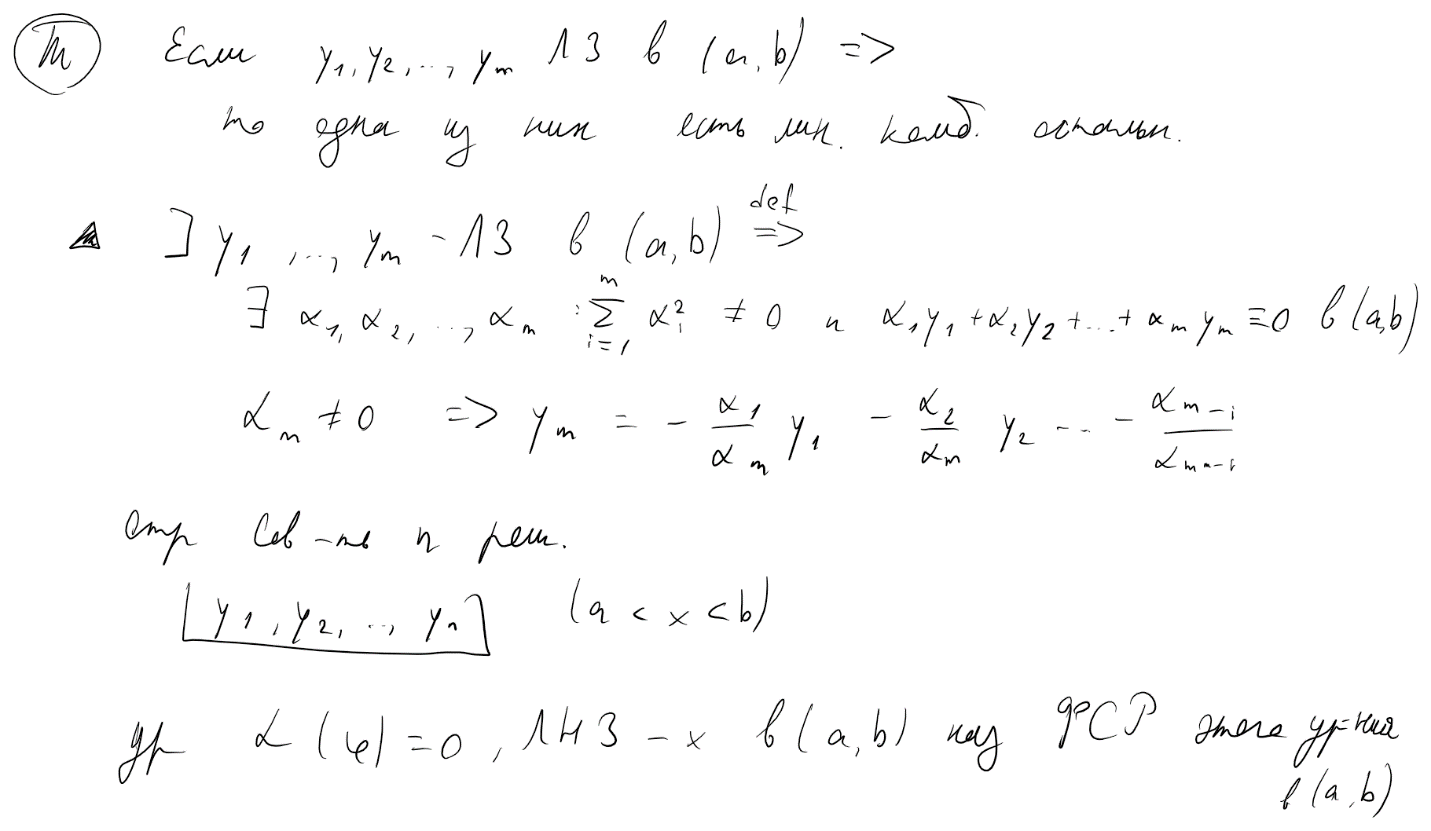 Ⓣ Если y₁, y₂, ..., yₘ ЛЗ в (a, b) =>
то одна из них есть лин. комб. остальн.
▲ ] y₁, ..., yₘ - ЛЗ в (a, b) def =>
∃ α₁, α₂, ..., αₘ : Σᵢ₌₁ᵐ αᵢ² ≠ 0 и α₁y₁ + α₂y₂ + ... + αₘyₘ ≡ 0 в (a, b)
αₘ ≠ 0 => yₘ = - α₁/αₘ y₁ - α₂/αₘ y₂ ... - αₘ₋₁/αₘ₋₁
Отр Сов-ть n реш.
y₁, y₂, .., yₙ (a < x < b)
ур L(y) = 0, ЛНЗ-х в (a, b) наз ФСР этого ур-ния
в (a, b)